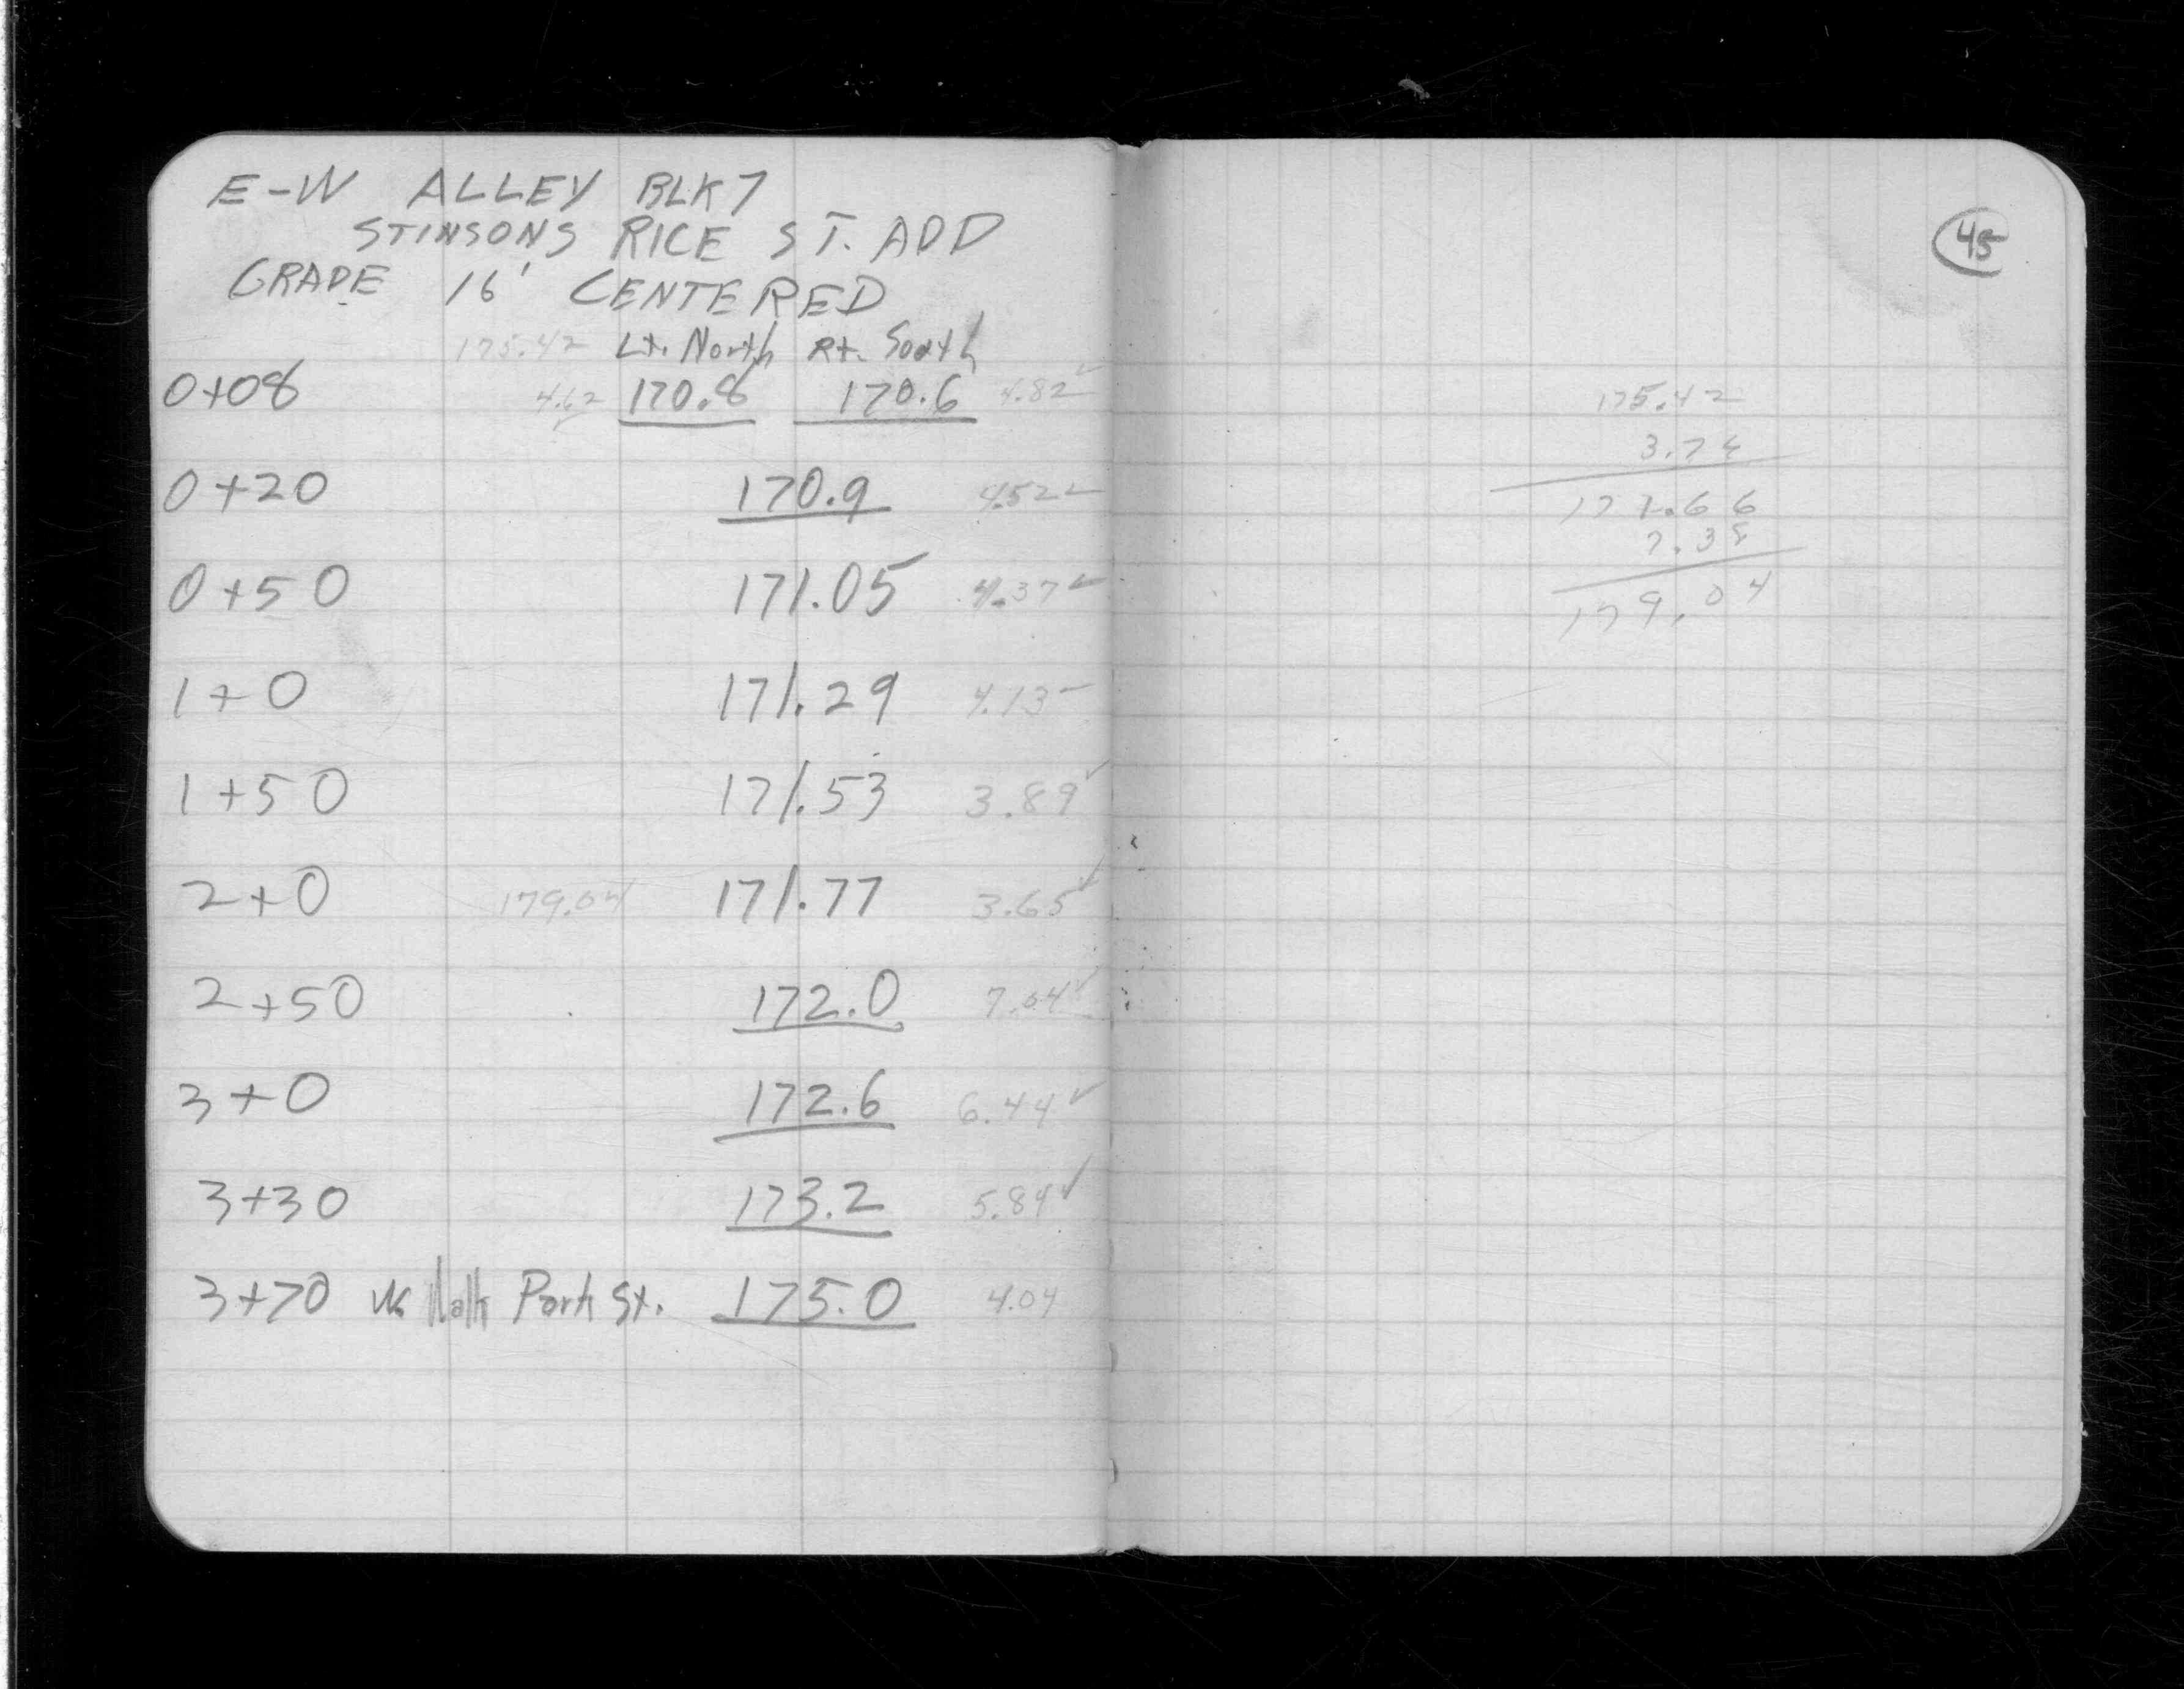 E-W ALLEY BLK 7
STINSONS RICE ST. ADD
GRADE 16' CENTERED
175.42 Lt. North Rt. South
0+08 4.62 170.8 170.6 4.82 ✓
0+20 170.9 4.52 ✓
0+50 171.05 4.37 ✓
1+0 171.29 4.13 -
1+50 171.53 3.89 ✓
2+0 179.04 171.77 3.65 ✓
2+50 172.0 7.04 ✓
3+0 172.6 6.44 ✓
3+30 173.2 5.84 ✓
3+70 Walk Park St. 175.0 4.04
45
175.42
3.76
171.66
7.38
179.04